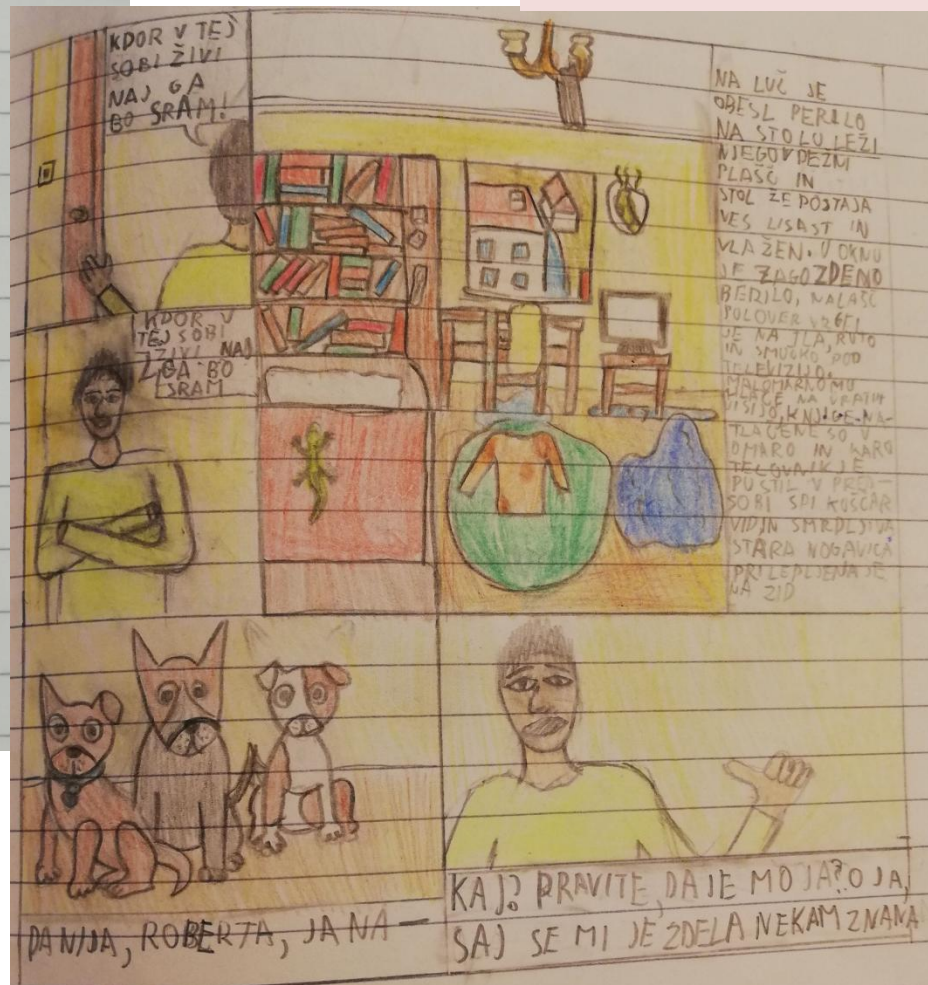 KDOR V TEJ
SOBI ŽIVI
NAJ GA
BO SRAM!
NA LUČ JE
OBESL PERILO
NA STOLU LEŽI
NJEGOV DEŽNI
PLAŠČ IN
STOL ŽE POSTAJA
VES LISAST IN
VLAŽEN. V OKNU
JE ZAGOZDENO
BERILO, NALAŠČ
PULOVER VRGEL
JE NA TLA, RUTO
IN SMUČKO POD
TELEVIZIJO,
MALOMARNO MU
HLAČE NA VRATIH
VISIJO, KNJIGE NA-
TLAČENE SO V
OMARO IN
TELOVNIK JE
PUSTIL V PRED-
SOBI SPI KUŠČAR
VIDIN SMRDLJIVA
STARA NOGAVICA
PRILEPLJENA JE
NA ZID
KDOR V
TEJ SOBI
ŽIVI NAJ
GA BO
SRAM
DANIJA, ROBERTA, JANA—
KAJ? PRAVITE, DA JE MOJA? OJA,
SAJ SE MI JE ZDELA NEKAM ZNANA